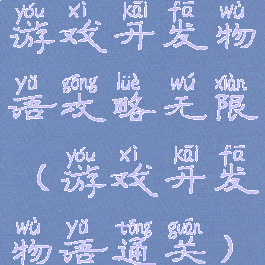 yóu xì kāi fā wù
游戏开发物
yǔ gōng lüè wú xiàn
语攻略无限
yóu xì kāi fā
（游戏开发
wù yǔ tōng guān
物语通关）